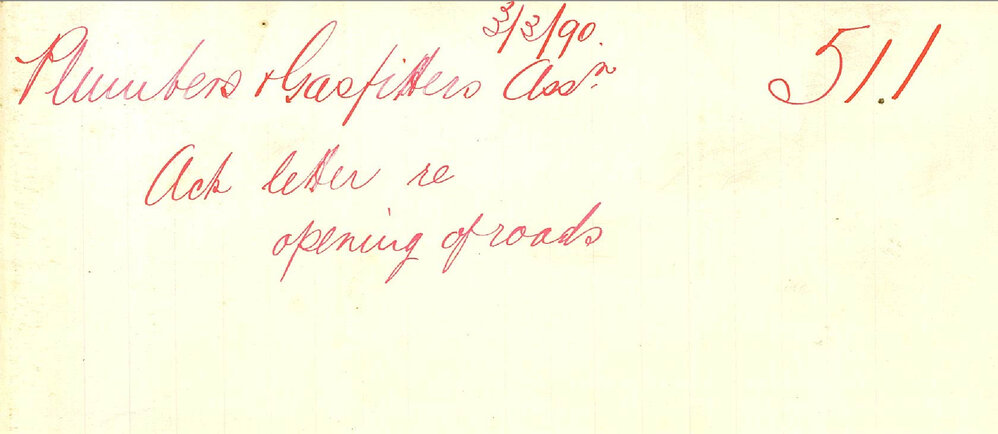 3/3/90.
Plumbers & Gasfitters Assn. 511
Ack letter re
opening of roads